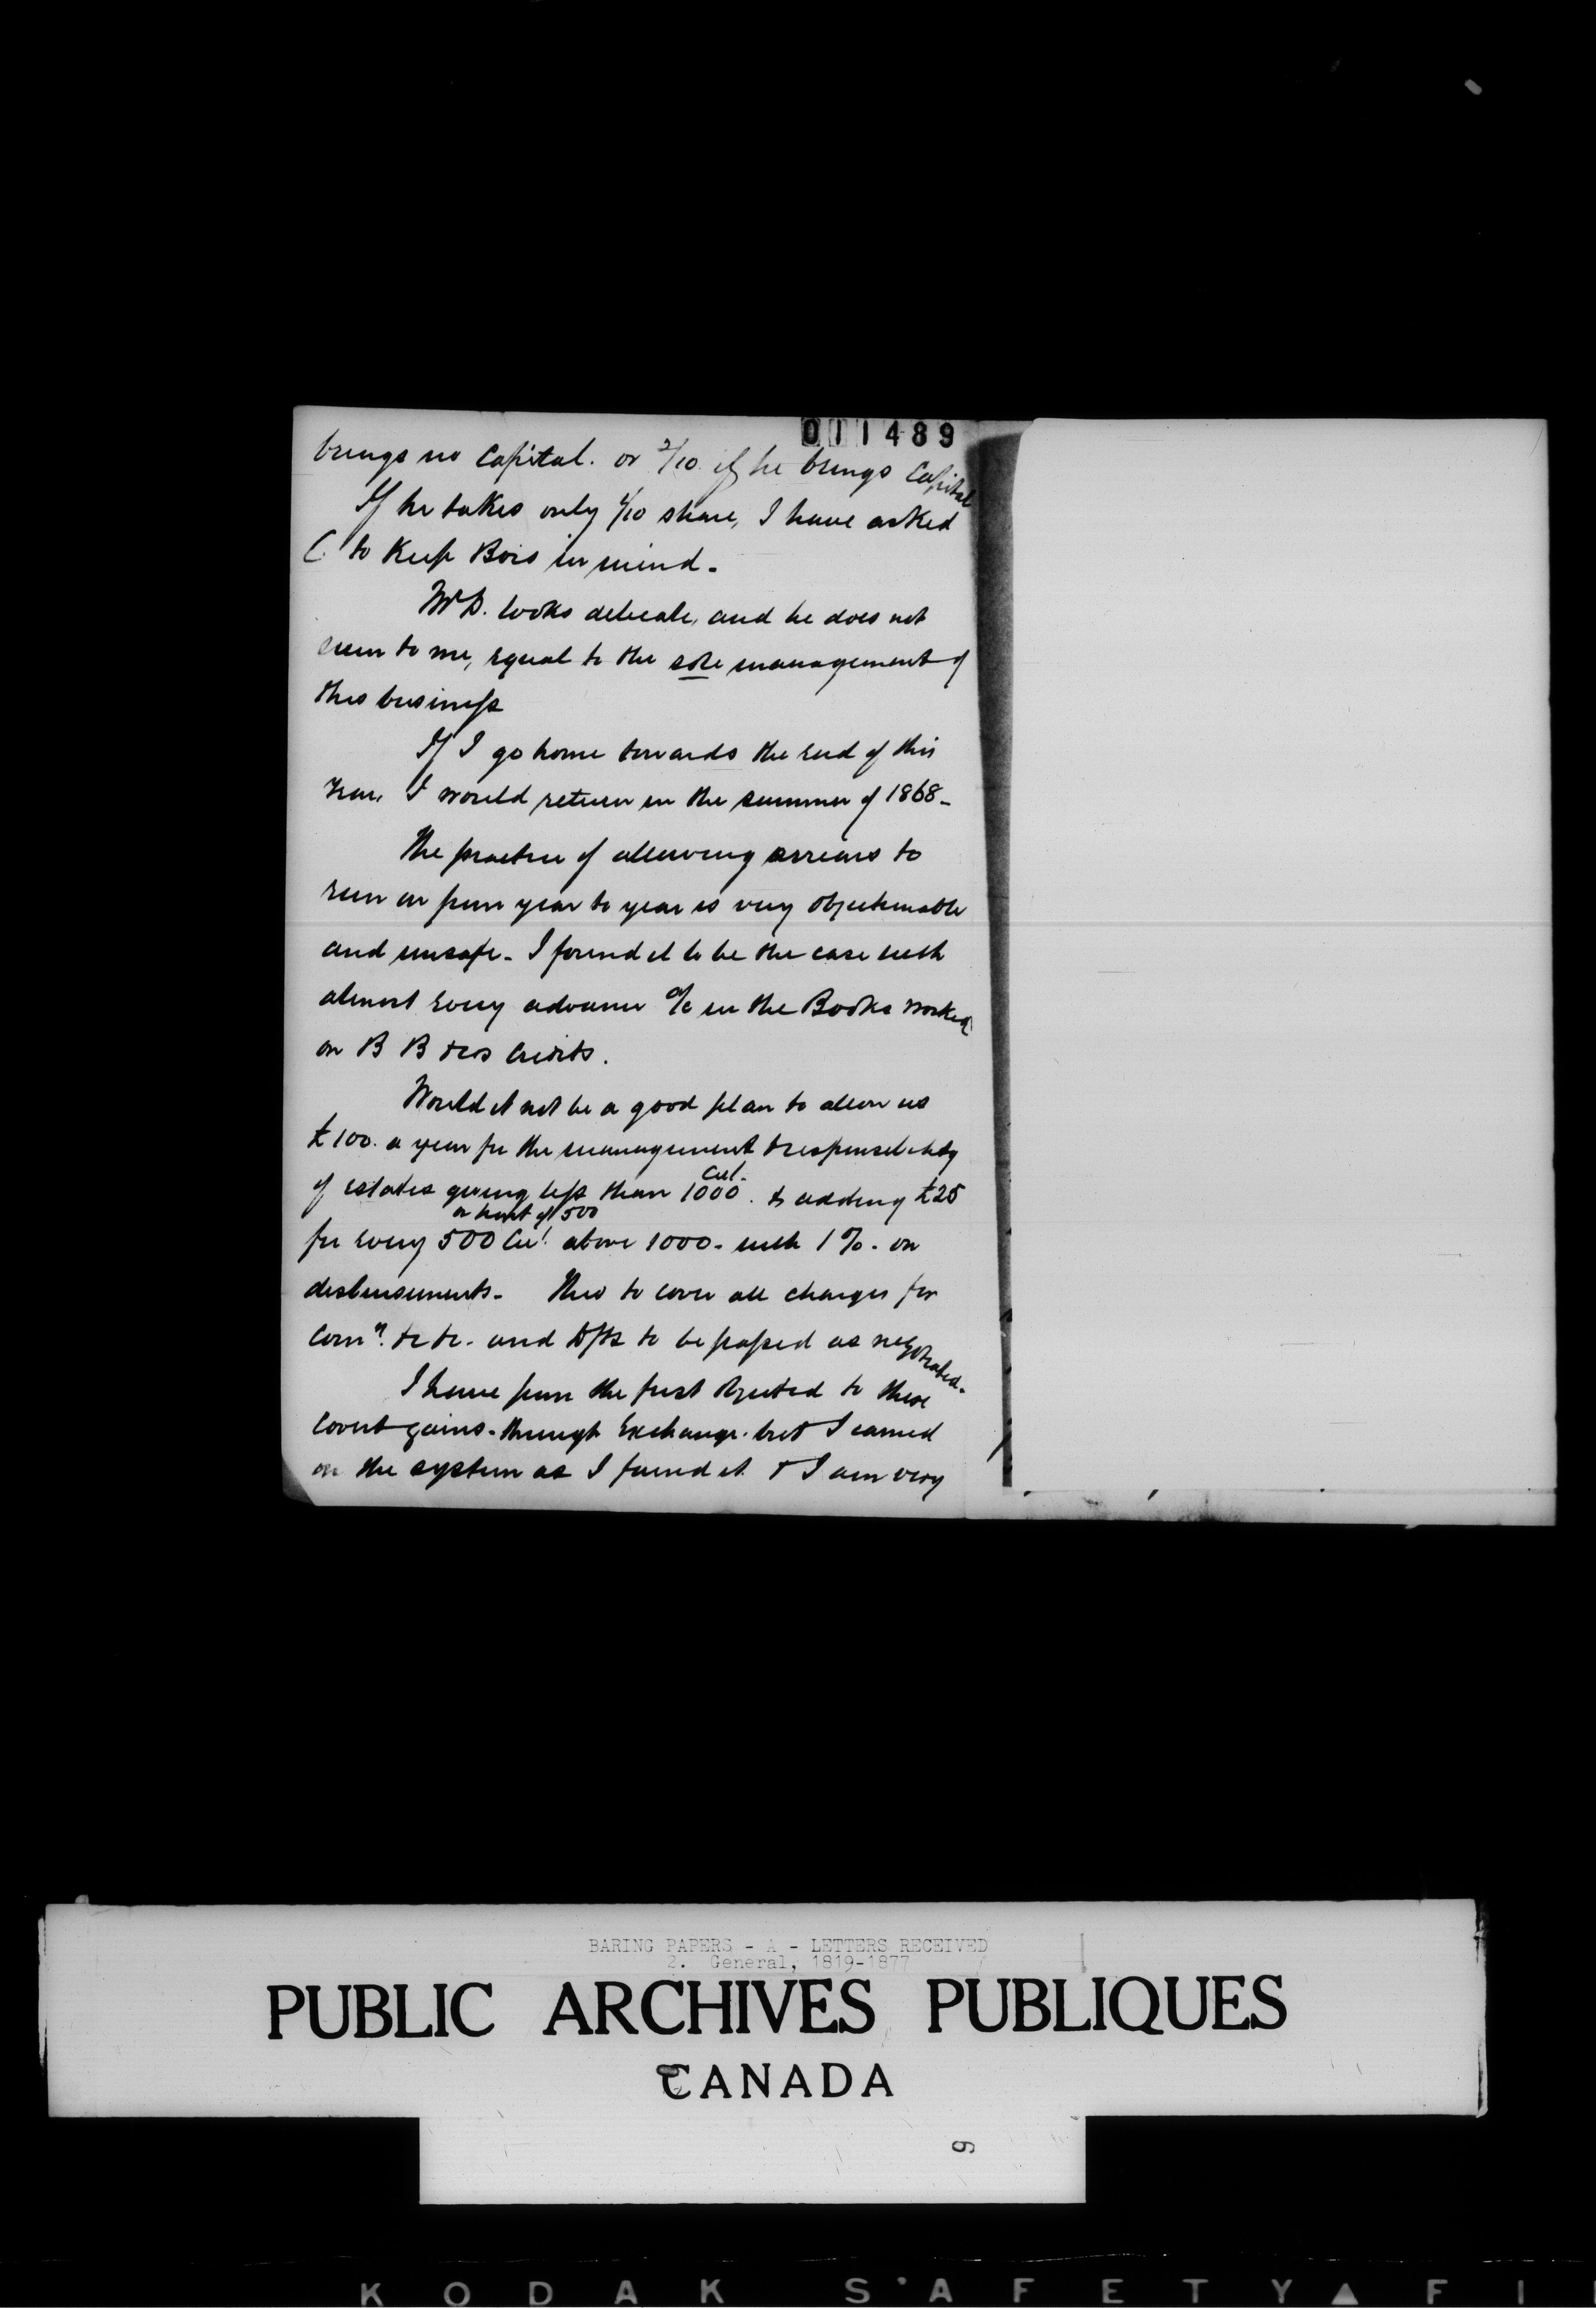 011489
brings no Capital. or 2/10 if he brings Capital
If he takes only 1/10 share, I have asked
C. to Keep Bois in mind.
Mr D. looks delicate, and he does not
seem to me, equal to the sole management of
this business
If I go home towards the end of this
Year, I would return in the summer of 1868.
The practice of allowing arrears to
run on from year to year is very objectionable
and unsafe. I found it to be the case with
almost every advance a/c in the Books worked
on B B &Cos Credits.
Would it not be a good plan to allow us
£100. a year for the management & responsibility
Cwt.
of estates giving less than 1000. & adding £25
or part of 500
for every 500 Cwt above 1000. with 1%. on
disbursements. This to cover all charges for
Comn. &c &c. and Dfts to be passed as negotiated.
I have from the first objected to these
covert gains. through Exchange. but I carried
on the system as I found it & I am very
BARING PAPERS - A - LETTERS RECEIVED
2. General, 1819-1877
PUBLIC ARCHIVES PUBLIQUES
CANADA
9
KODAK SAFETY FI